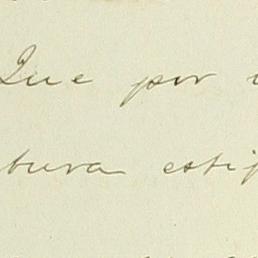 Que por
tura estip